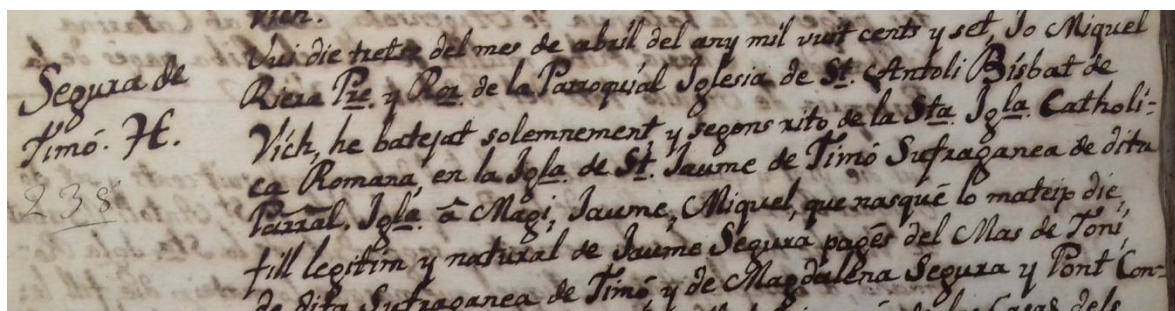 Vich.
Vui die tretze del mes de abril del any mil vuit cents y set, Jo Miquel
Segura de
Riera Pre. y Ror. de la Parroquial Iglesia de St. Antoli Bisbat de
Timó. H.
Vich, he batejat solemnement, y segons rito de la Sta. Igla. Catholi-
238
ca Romana, en la Igla. de St. Jaume de Timó Sufraganea de dita
Parral. Igla. â Magi, Jaume, Miquel, que nasqué lo mateix die,
fill legitim y natural de Jaume Segura pagés del Mas de Toni,
de dita Sufraganea de Timó y de Magdalena Segura y Pont Con-
de las Casas dels